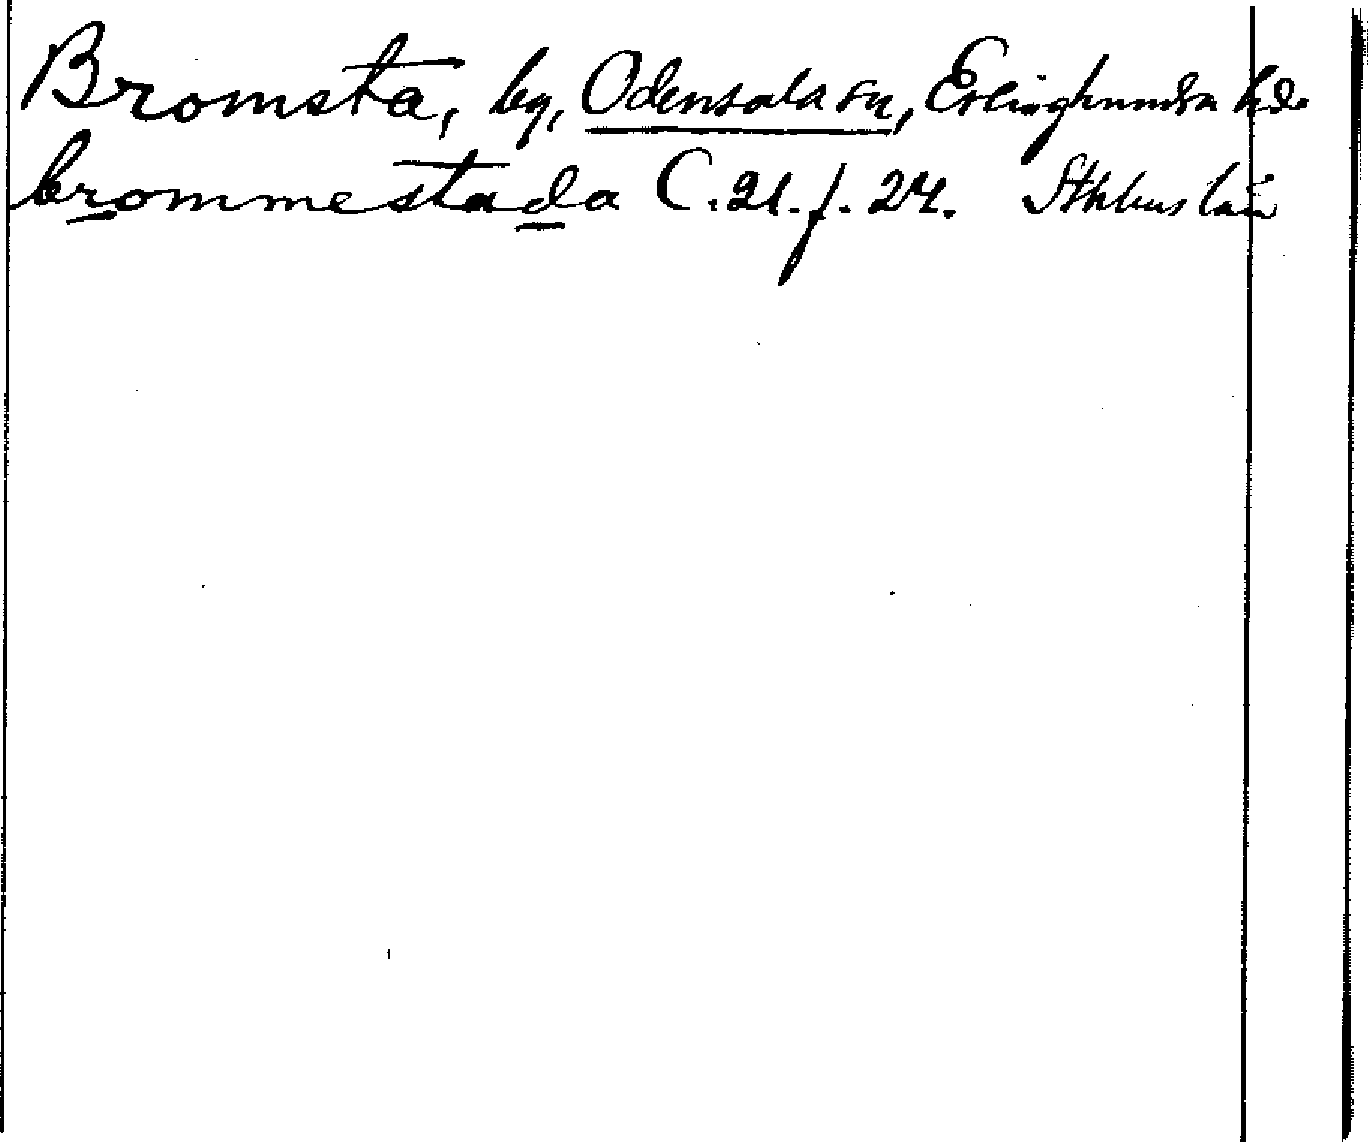 Bromsta, by, Odensala sn, Erlinghundra hd.
brommestada C. 21. f. 24. Sthlms län